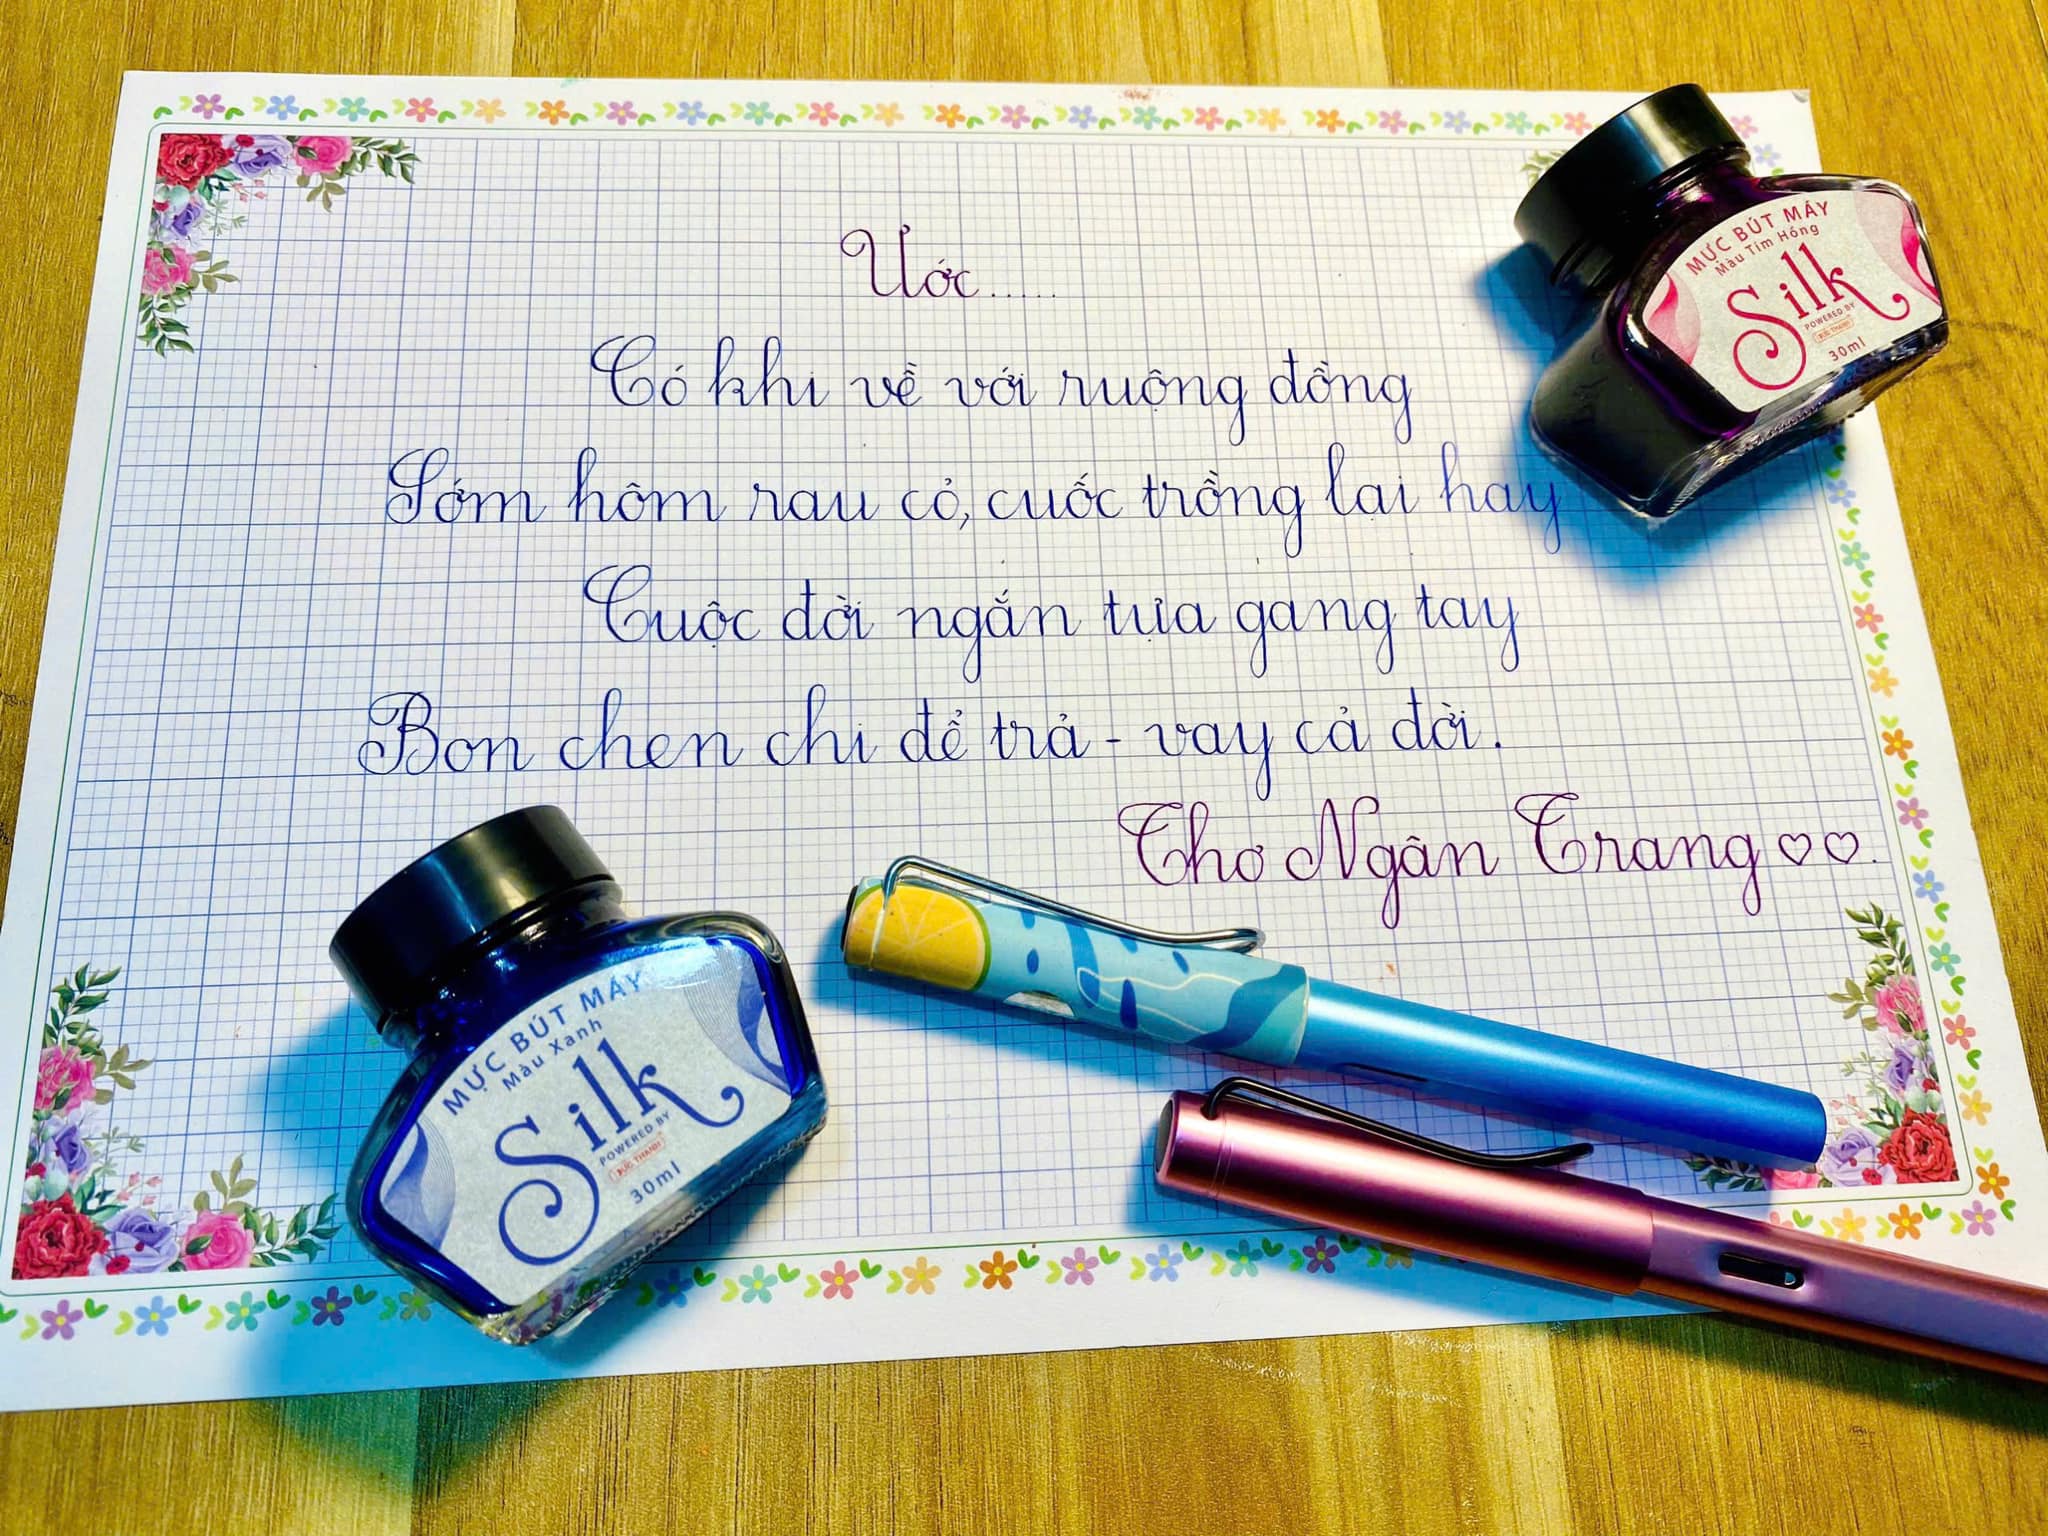 Ước.....
Có khi về với ruộng đồng
Sớm hôm rau cỏ, cuốc trồng lại hay
Cuộc đời ngắn tựa gang tay
Bon chen chi để trả - vay cả đời.
Thơ Ngân Trang ♡♡.
MỰC BÚT MÁY
Màu Tím Hồng
Silk
POWERED BY
ĐỨC THANH
30ml
MỰC BÚT MÁY
Màu Xanh
Silk
POWERED BY
ĐỨC THANH
30ml